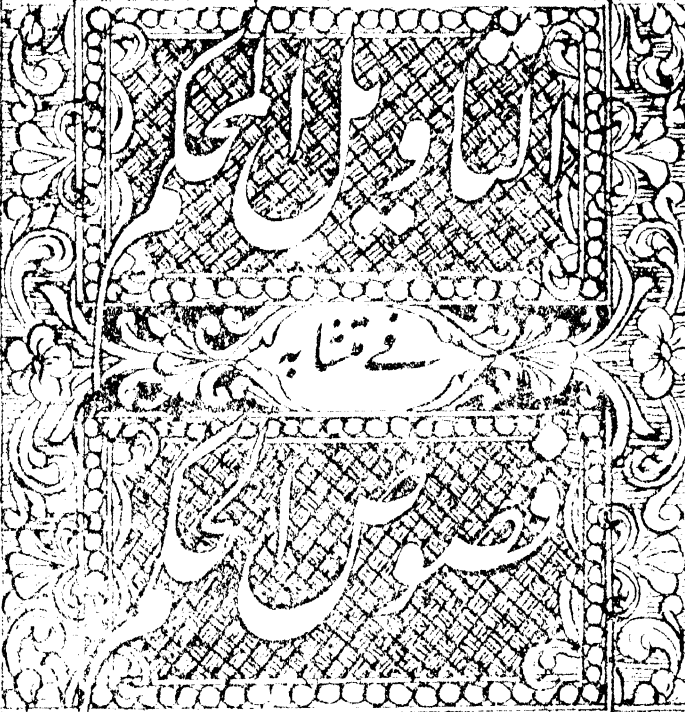 التاويل المحكم
في متشابه
فصوص الحكم